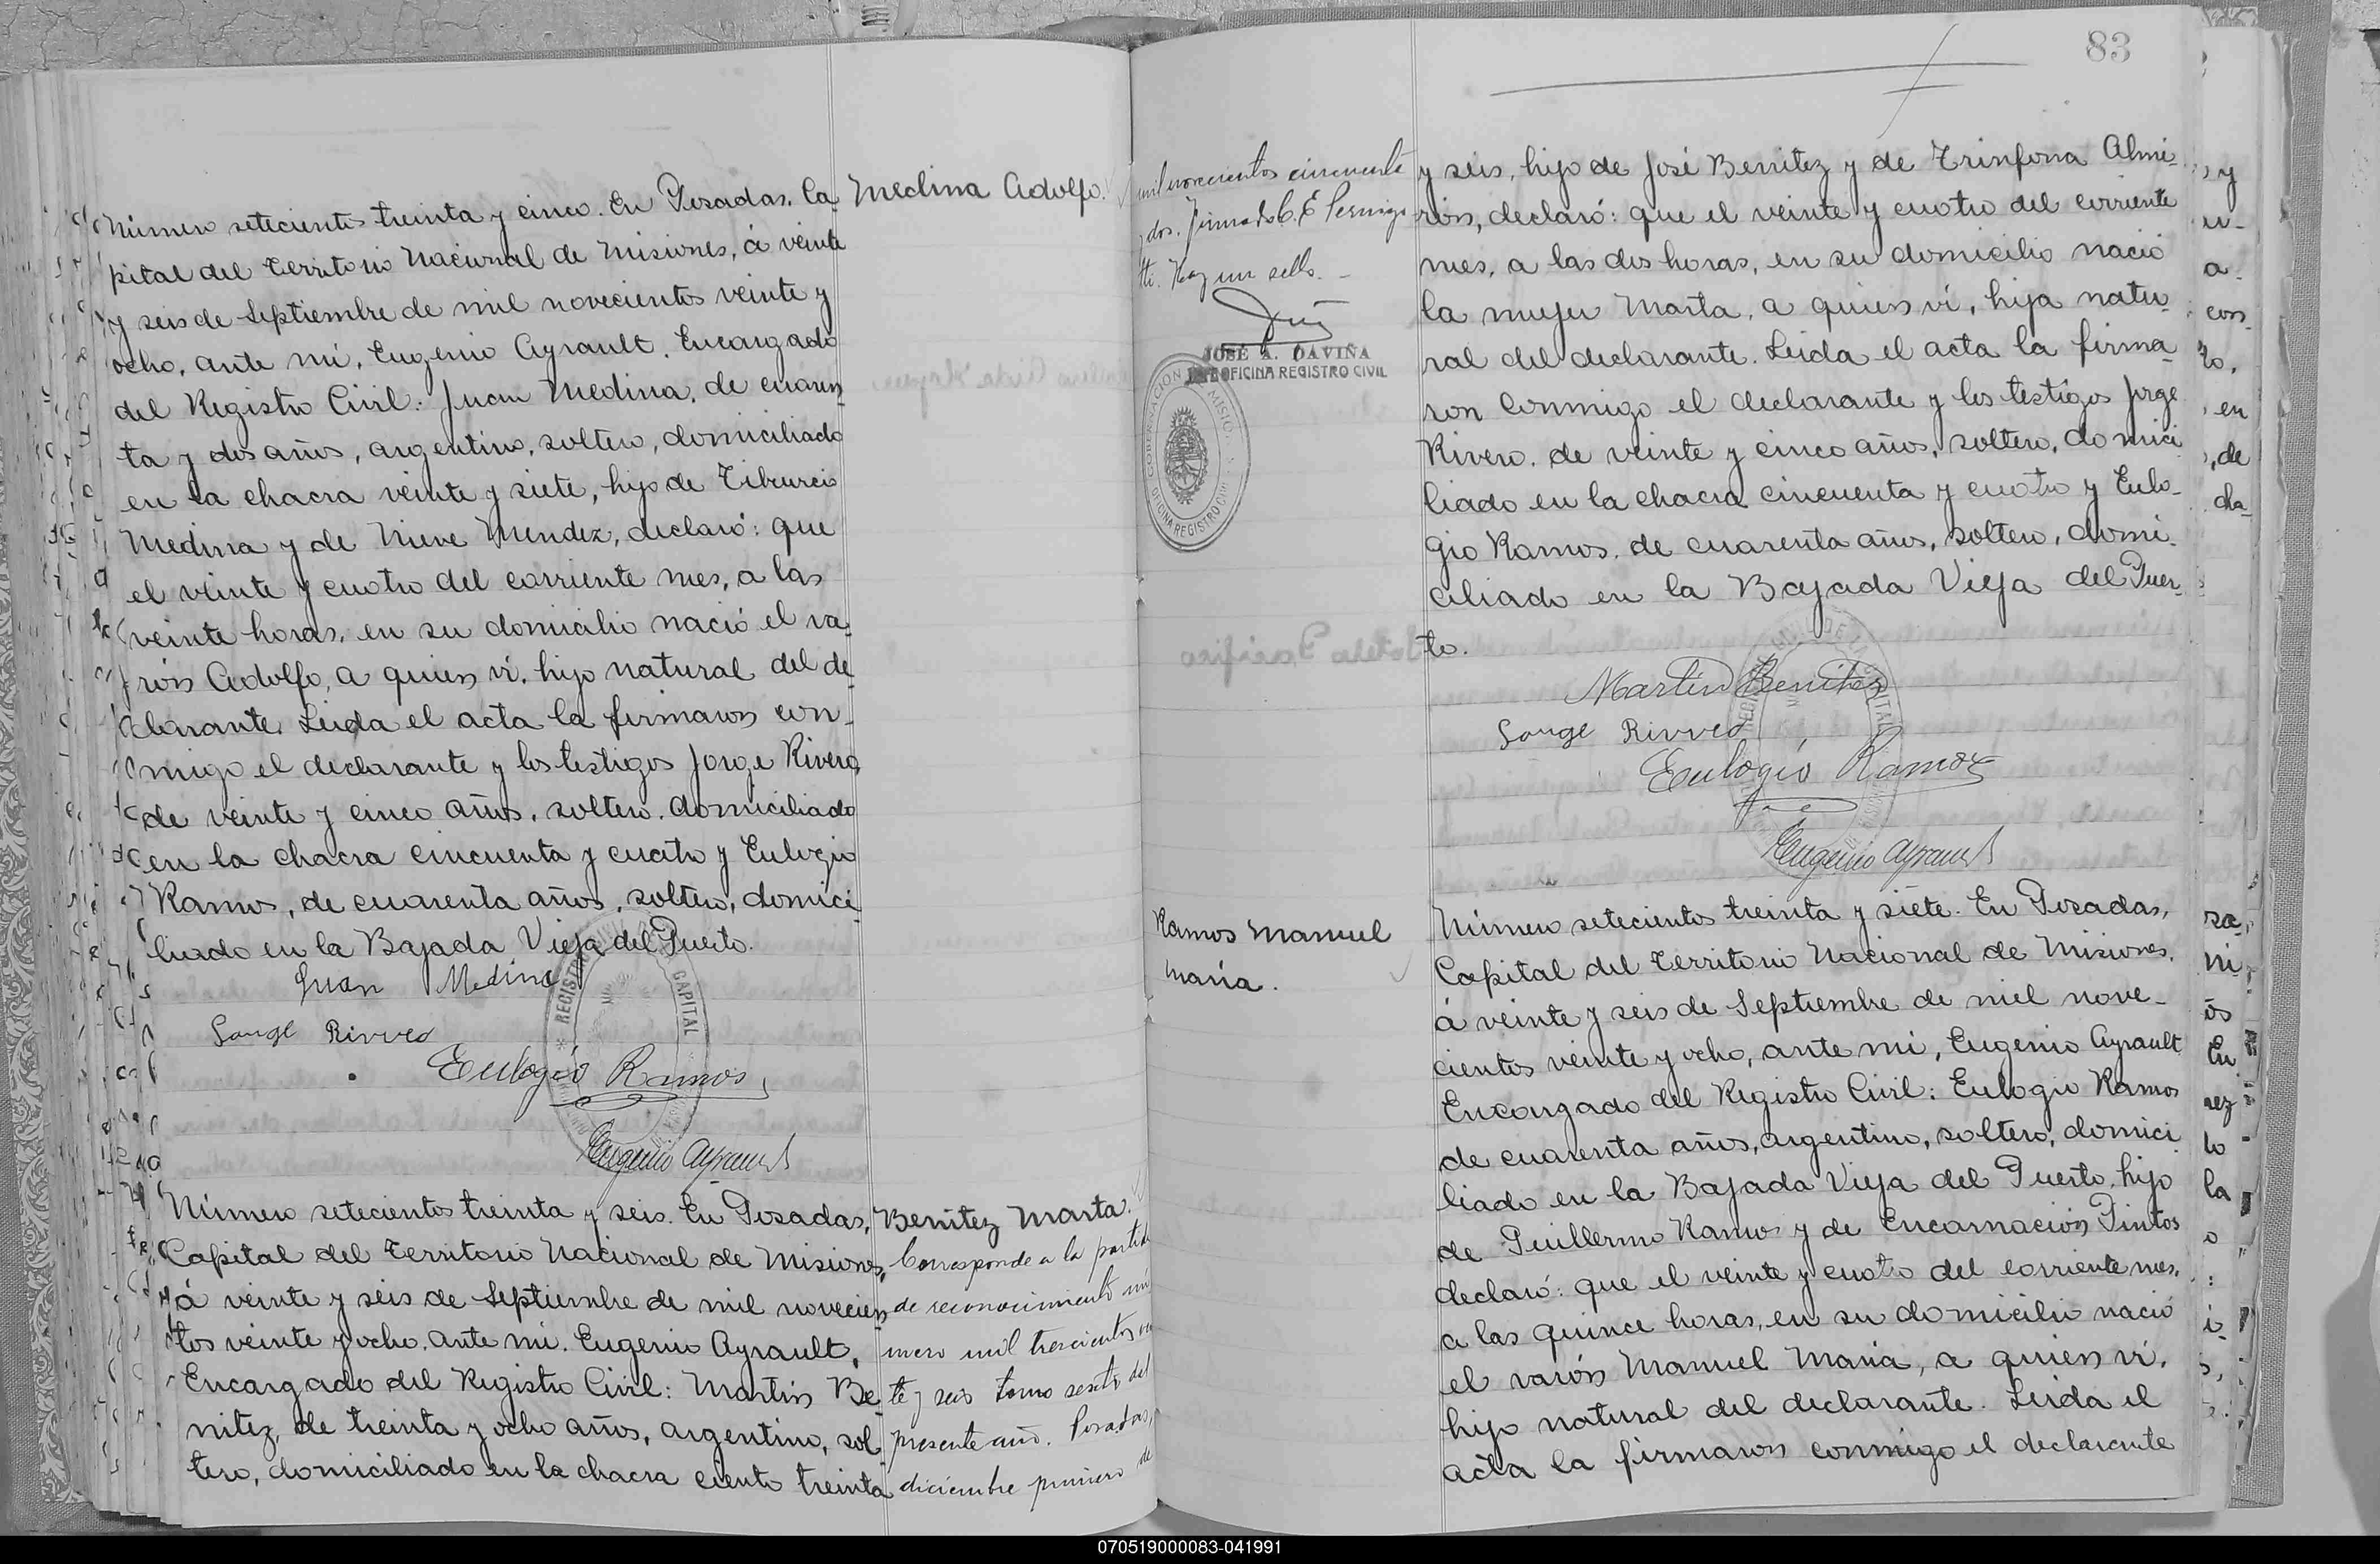 Número setecientos treinta y cinco. En Posadas, Ca-
pital del Territorio Nacional de Misiones, á veinte
y seis de Septiembre de mil novecientos veinte y
ocho, ante mi, Eugenio Ayrault, Encargado
del Registro Civil: Juan Medina, de cuaren-
ta y dos años, argentino, soltero, domiciliado
en la chacra veinte y siete, hijo de Tiburcio
Medina y de Nieve Mendez, declaró: que
el veinte y cuatro del corriente mes, a las
veinte horas, en su domicilio nació el va-
rón Adolfo, a quien ví, hijo natural del de-
clarante. Leida el acta la firmaron con-
migo el declarante y los testigos Jorge Rivero,
de veinte y cinco años, soltero, domiciliado
en la chacra cincuenta y cuatro y Eulogio
Ramos, de cuarenta años, soltero, domici-
liado en la Bajada Vieja del Puerto.
Juan Medina
Jorge Rivveo
Eulogio Ramos
Eugenio Ayrault
REGISTRO
CAPITAL
Medina Adolfo.
Número setecientos treinta y seis. En Posadas,
Capital del Territorio Nacional de Misiones,
á veinte y seis de Septiembre de mil novecien-
tos veinte y ocho, ante mi, Eugenio Ayrault,
Encargado del Registro Civil: Martín Be-
nitez, de treinta y ocho años, argentino, sol-
tero, domiciliado en la chacra ciento treinta
Benitez Marta.
Corresponde a la partida
de reconocimiento nú
mero mil trescientos vein
te y seis tomo sexto del
presente año. Posadas,
diciembre primero de
83
mil novecientos cincuenta
y dos. Firmado C. E. Pernigo
tti. Hay un sello.
JOSÉ A. DAVIÑA
JEFE OFICINA REGISTRO CIVIL
GOBERNACION MISIO
OFICINA REGISTRO CIVIL
y seis, hijo de José Benitez y de Trinfona Almi-
rón, declaró: que el veinte y cuatro del corriente
mes, a las dos horas, en su domicilio nació
la mujer Marta, a quien ví, hija natu-
ral del declarante. Leida el acta la firma-
ron conmigo el declarante y los testigos Jorge
Rivero, de veinte y cinco años, soltero, domici
liado en la chacra cincuenta y cuatro y Eulo-
gio Ramos, de cuarenta años, soltero, domi-
ciliado en la Bajada Vieja del Puer-
to.
Martin Benitez
Jorge Rivveo
Eulogio Ramos
Eugenio Ayrault
Ramos Manuel
Maria.
Número setecientos treinta y siete. En Posadas,
Capital del Territorio Nacional de Misiones,
á veinte y seis de Septiembre de mil nove-
cientos veinte y ocho, ante mi, Eugenio Ayrault
Encargado del Registro Civil: Eulogio Ramos
de cuarenta años, argentino, soltero, domici
liado en la Bajada Vieja del Puerto, hijo
de Guillermo Ramos y de Encarnación Pintos
declaró: que el veinte y cuatro del corriente mes,
a las quince horas, en su domicilio nació
el varón Manuel Maria, a quien ví,
hijo natural del declarante. Leida el
acta la firmaron conmigo el declarante
070519000083-041991